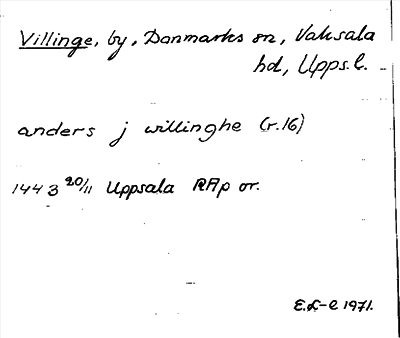 Villinge, by, Danmarks sn, Vaksala
hd, Upps. l.
anders j willinghe (r. 16)
1443 20/11 Uppsala RAp or.
E. L-e 1971.